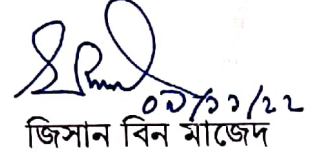 ০৯/১১/২২
জিসান বিন মাজেদ